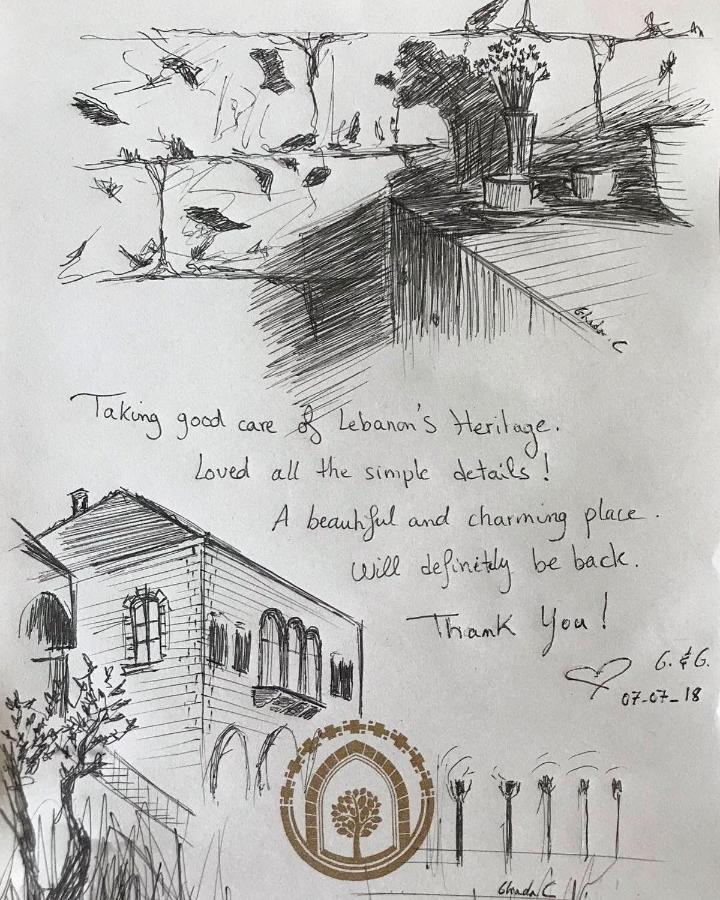 Ghada. C
Taking good care of Lebanon's Heritage.
Loved all the simple details !
A beautiful and charming place.
Will definitely be back.
Thank You !
G. & G.
07-07-18
Ghada C